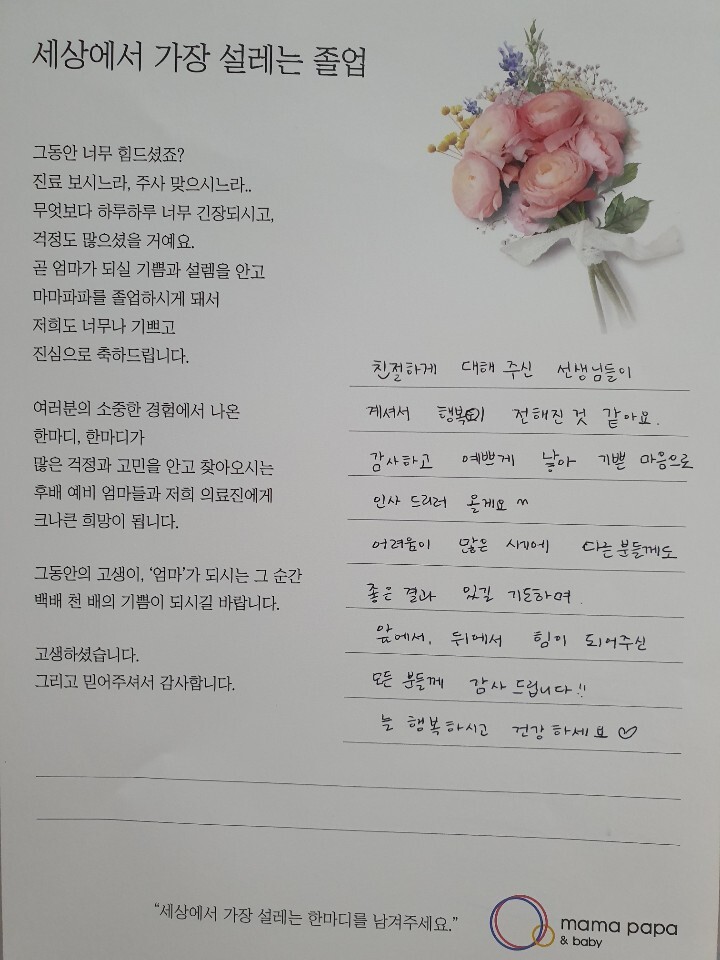 세상에서 가장 설레는 졸업
그동안 너무 힘드셨죠?
진료 보시느라, 주사 맞으시느라..
무엇보다 하루하루 너무 긴장되시고,
걱정도 많으셨을 거예요.
곧 엄마가 되실 기쁨과 설렘을 안고
마마파파를 졸업하시게 돼서
저희도 너무나 기쁘고
진심으로 축하드립니다.
여러분의 소중한 경험에서 나온
한마디, 한마디가
많은 걱정과 고민을 안고 찾아오시는
후배 예비 엄마들과 저희 의료진에게
크나큰 희망이 됩니다.
그동안의 고생이, ‘엄마’가 되시는 그 순간
백배 천 배의 기쁨이 되시길 바랍니다.
고생하셨습니다.
그리고 믿어주셔서 감사합니다.
친절하게 대해 주신 선생님들이
계셔서 행복이 전해진 것 같아요.
감사하고 예쁘게 낳아 기쁜 마음으로
인사 드리러 올게요 ^^
어려움이 많은 시기에 다른 분들께도
좋은 결과 있길 기도하며.
앞에서, 뒤에서 힘이 되어주신
모든 분들께 감사 드립니다!!
늘 행복하시고 건강하세요 ♡
“세상에서 가장 설레는 한마디를 남겨주세요.”
mama papa
& baby